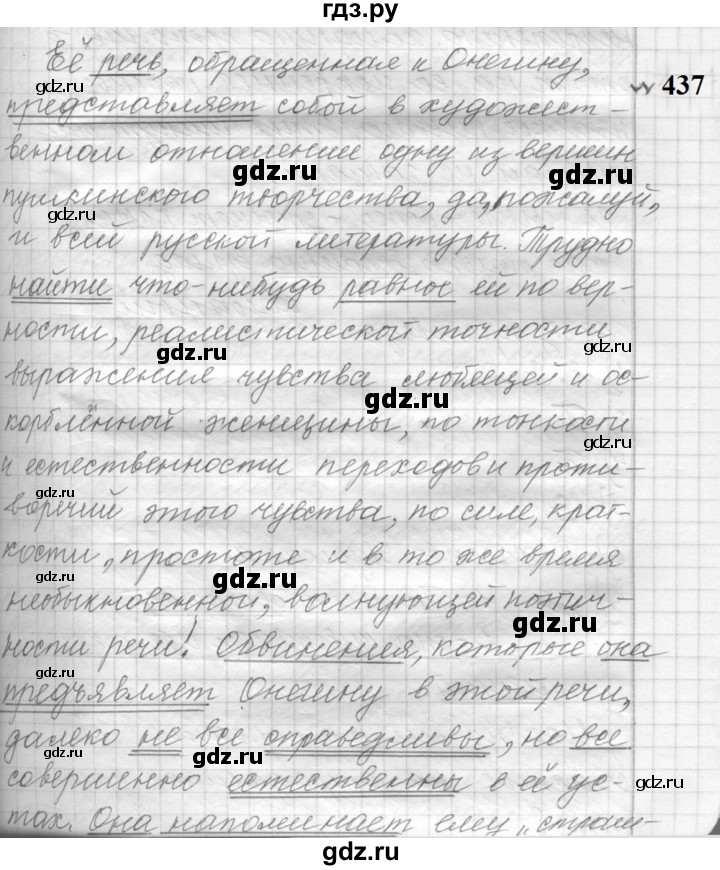 гдз.ру
Её речь, обращенная к Онегину,
437
представляет собой в художест-
венном отношении одну из вершин
gdz.ru gdz.ru
пушкинского творчества, да, пожалуй,
gdz.ru
и всей русской литературы. Трудно
gdz.ru
найти что-нибудь равное ей по вер-
ности, реалистической точности
gdz.ru gdz.ru
выражения чувства любящей и ос-
gdz.ru
корблённой женщины, по тонкости
gdz.ru
и естественности переходов и проти-
gdz.ru
воречий этого чувства, по силе, крат-
кости, простоте и в то же время
gdz.ru gdz.ru
необыкновенной, волнующей поэтич-
gdz.ru
ности речи! Обвинения, которые она
gdz.ru
предъявляет Онегину в этой речи,
далеко не все справедливы, но все
gdz.ru
совершенно естественны в её ус-
gdz.ru
тах. Она напоминает ему „страш-
gdz.ru